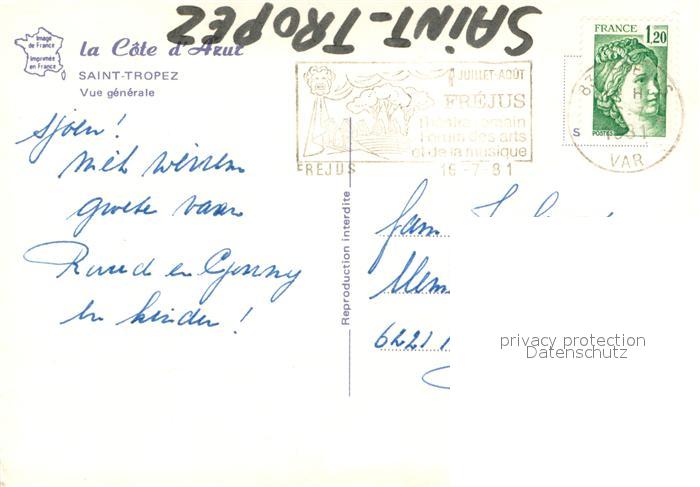 SAINT-TROPEZ
Image
de France
Imprimée
en France
la Côte d'Azur
SAINT-TROPEZ
Vue générale
FRANCE 1,20
POSTES
S
JUILLET-AOÛT
FRÉJUS
Théâtre romain
Forum des arts
et de la musique
FREJUS 16-7 81
1981
VAR
sjoen!
met
groete van
Ruud en Conny
en kinder!
Reproduction interdite
fam
6221
privacy protection
Datenschutz